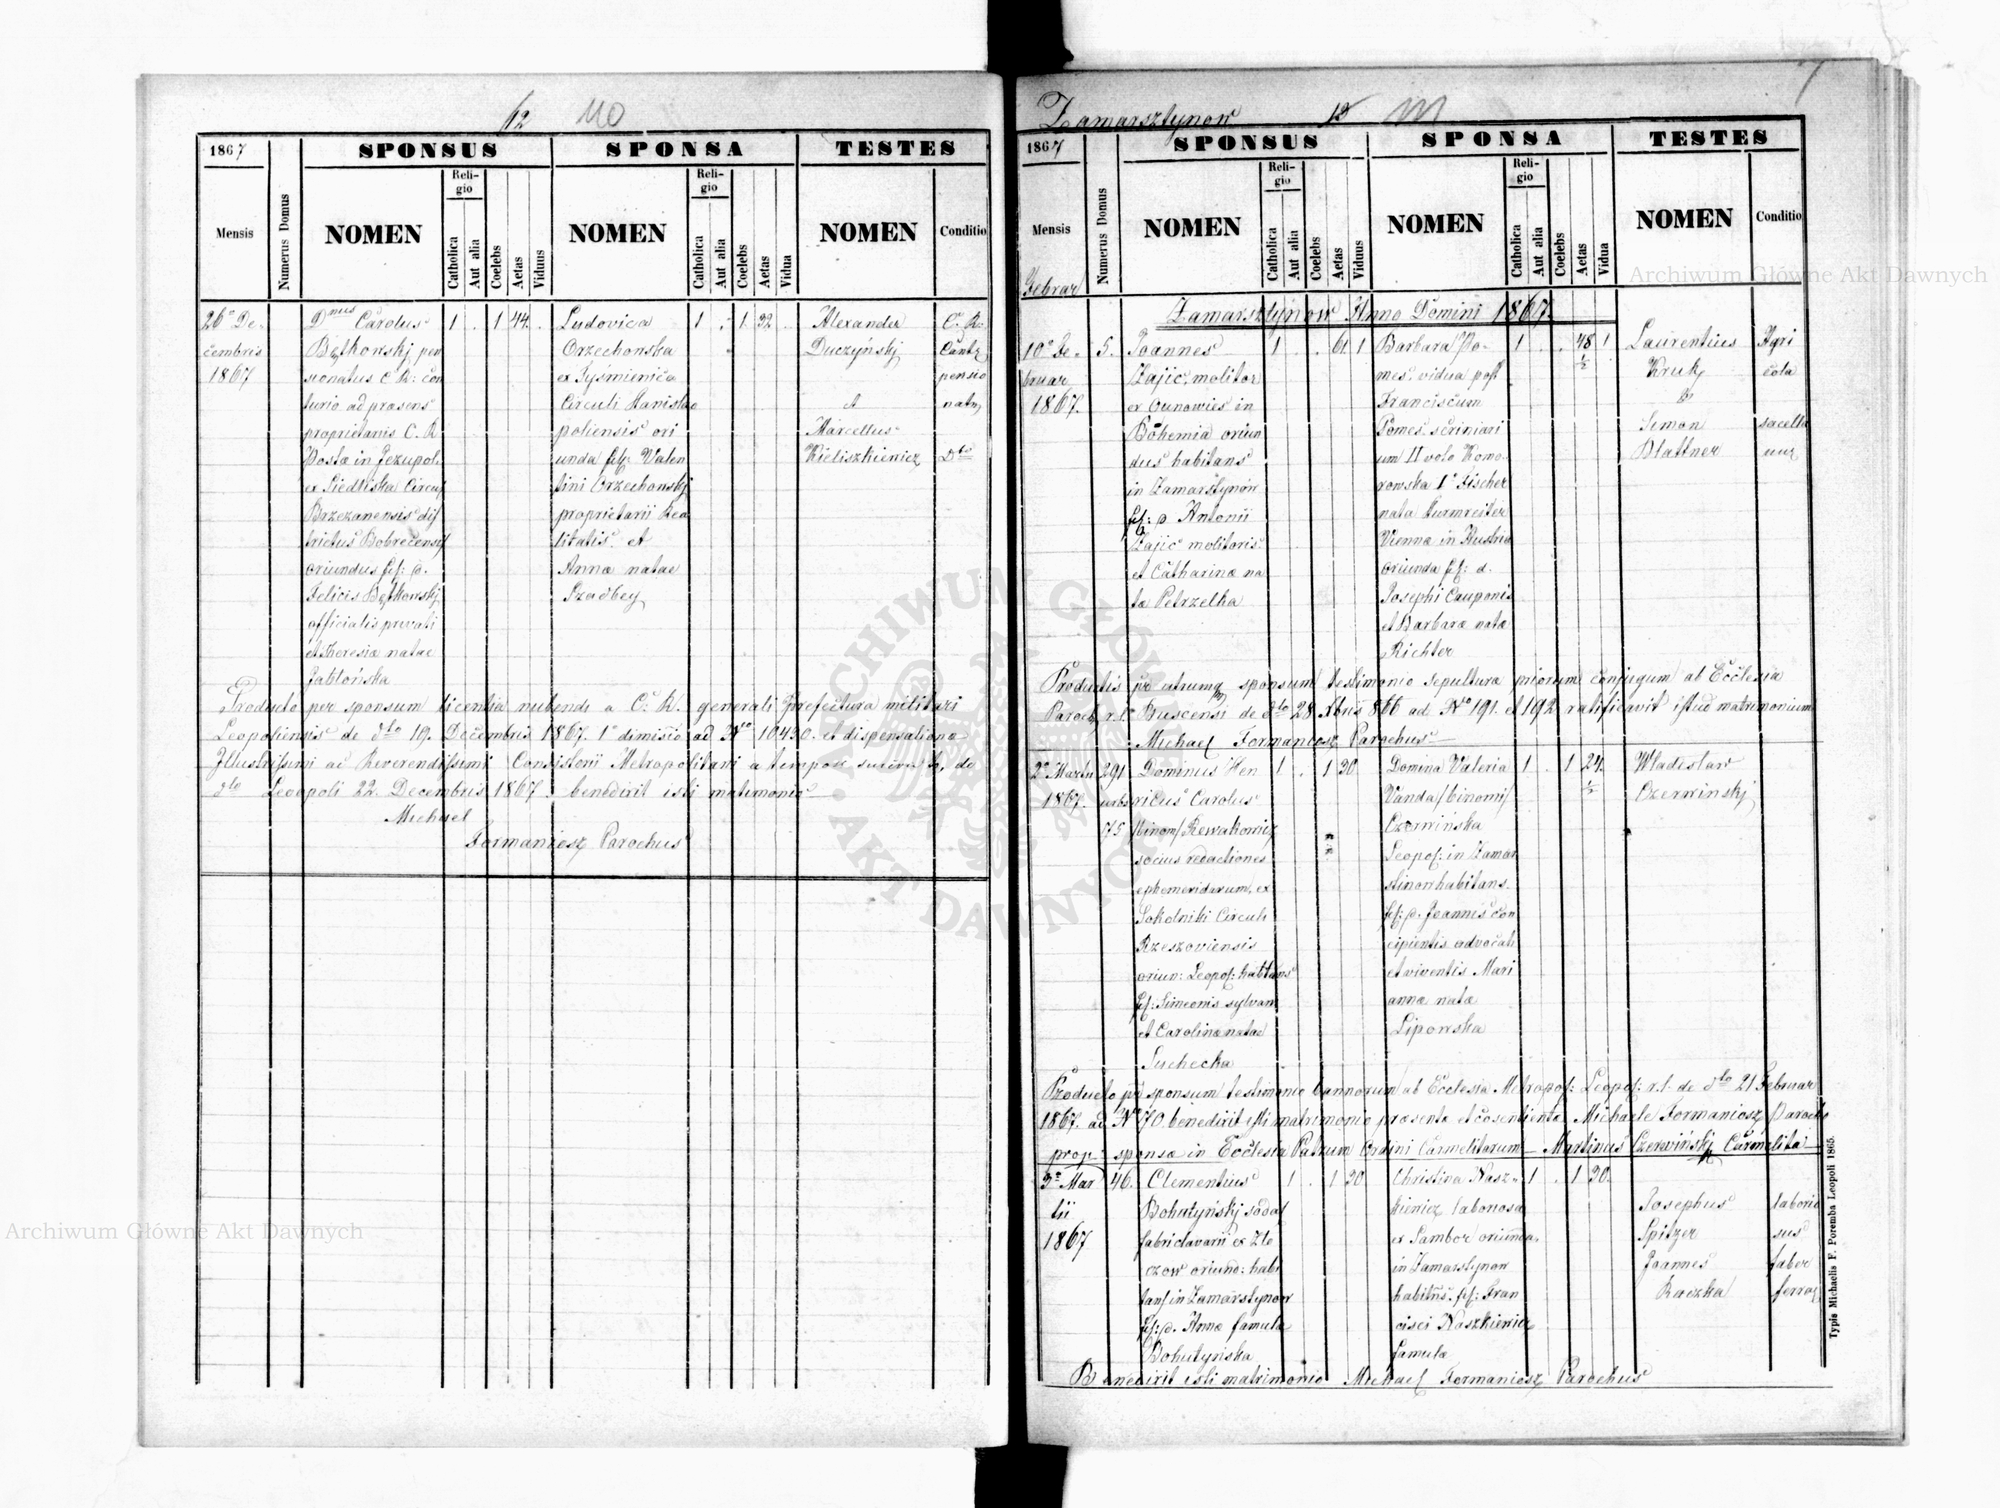 12 110
1867
SPONSUS SPONSA TESTES
Mensis
Numerus Domus
NOMEN
Religio
Catholica
Aut alia
Coelebs
Aetas
Viduus
NOMEN
Religio
Catholica
Aut alia
Coelebs
Aetas
Vidua
NOMEN
Conditio
26a De-
cembris
1867
Dnus Carolus
Bętkowskj pen
sionatus C. R: cen
turio ad præsens
proprietarius C. R
Postæ in Jezupol.
ex Siedliska Circuf
Brzezanensis dif
trictus Bobrecensif
oriundus fif: d.
Felicis Bętkowskj
officialis privati
et Theresiæ natae
Jabłońska
1 . 1 44 .
Ludovica
Orzechonska
ex Tyśmienica
Circuli Stanislao
poliensis ori
unda fif. Valen
tini Orzechonskj
proprietarii Rea
litatis et
Annæ natae
Szadbey
1 . 1 32 .
Alexander
Duczyńskj
et
Marcellus
Kieliszkiewicz
C. R.
pensio
natus
Dto
Producto per sponsum licentia nubendi a C. R. generali Præfectura militari
Leopoliensis de dto 19. Decembris 1867. 1a dimissio ad No 10430. et dispensatione
Illustrissimi ac Reverendissimi Consistorii Metropolitani a tempore de
dto Leopoli 22. Decembris 1867. benedixit isti matrimonio
Michael
Formaniosz Parochus
7
Zamarsztynow 13 111
1867
SPONSUS SPONSA TESTES
Mensis
Februar
Numerus Domus
NOMEN
Religio
Catholica
Aut alia
Coelebs
Aetas
Viduus
NOMEN
Religio
Catholica
Aut alia
Coelebs
Aetas
Vidua
NOMEN
Conditio
Zamarsztynow Anno Domini 1867.
10a Fe-
bruar
1867.
5.
Joannes
Zajic, molitor
ex Ounowies in
Bohemia oriun
dus habitans
in Zamarstynów
fif: d Antonii
Zajic molitoris
et Catharinæ na
ta Petrzelka
1 . . 61 1
Barbara Po-
mes. vidua post
Franciscum
Pomes. scriniari
um II voto Komo-
rowska 1o Fischer
nata Turmreiter
Viennæ in Austria
oriunda fif: d.
Josephi Cauponis
et Barbaræ natæ
Richter
1 . . 48 1/2 1
Laurentius
Kruk
Simon
Blattner
Agri
cola
Productis per utrumq sponsum testimonio sepultura priorum conjugum ab Ecclesia
Paroch. r. l. Buscensi de dto 28. Xbris 866 ad No 191. et 192 ratificavit istud matrimonium
Michael Formaniosz Parochus
2a Martii
1867.
291
urbs
75
Dominus Hen
ricus Carolus
/binom/ Rewakowicz
socius redactiones
ephemeridarum, ex
Sokolniki Circuli
Rzeszoviensis
oriun: Leopof: habitans
fif: Simeonis sylvan
et Carolinæ natae
Suchecka
1 . 1 30
Domina Valeria
Vanda /binomi/
Czerwińska
Leopof: in Zamar
stinow habitans
fif: d. Joannis con
cipientis advocati
et viventis Mari
annæ natæ
Lipowska
1 . 1 24 1/2
Wladislaw
Czerwinskj
Producto per sponsum testimonio bannorum ab Ecclesia Metropof: Leopof: r. l. de dto 21 Februar
1867. ad No 70. benedixit isti matrimonio præsente et cosentiente Michaele Formaniosz Parocho
prop: sponsæ in Ecclesia Patrum Ordini Carmelitarum Martinus Czerwińskj Carmelita
3a Mar
tii
1867
46.
Clementius
Bohutyńskj sodaf
fabri clavarii ex Zło
czow oriund: habi
tanf in Zamarstynow
fif: d. Annæ famula
Bohutyńska
1 . 1 30
Christina Nasz-
kiewicz laboriosa
ex Sambor oriunda
in Zamarstynow
habitns. fif: Fran
cisci Naszkiewicz
famulæ
1 . 1 30.
Josephus
Spitzer
Joannes
Raczka
laborio
sus
faber
Benedixit isti matrimonio Michael Formaniosz Parochus
Typis Michaelis F. Poremba Leopoli 1865.
Archiwum Główne Akt Dawnych
Archiwum Główne Akt Dawnych
ARCHIWUM GŁÓWNE AKT DAWNYCH